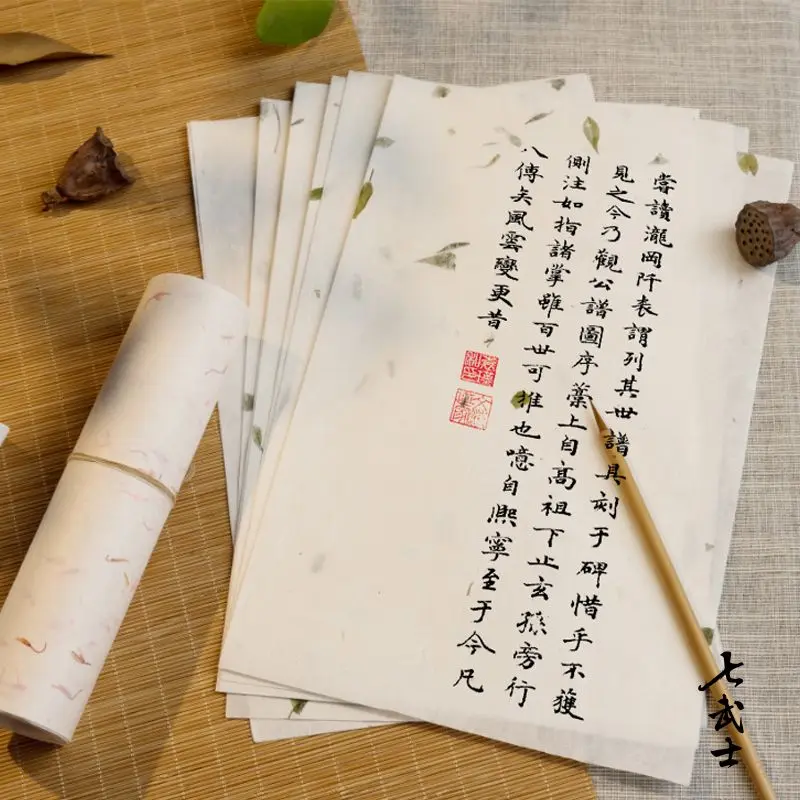 嘗讀瀧岡阡表謂列其世譜具刻于碑惜乎不獲
見之今乃觀公譜圖序藁上自高祖下止玄孫旁行
側注如指諸掌雖百世可推也噫自熙寧至于今凡
八傳矣風雲變更昔
七武士